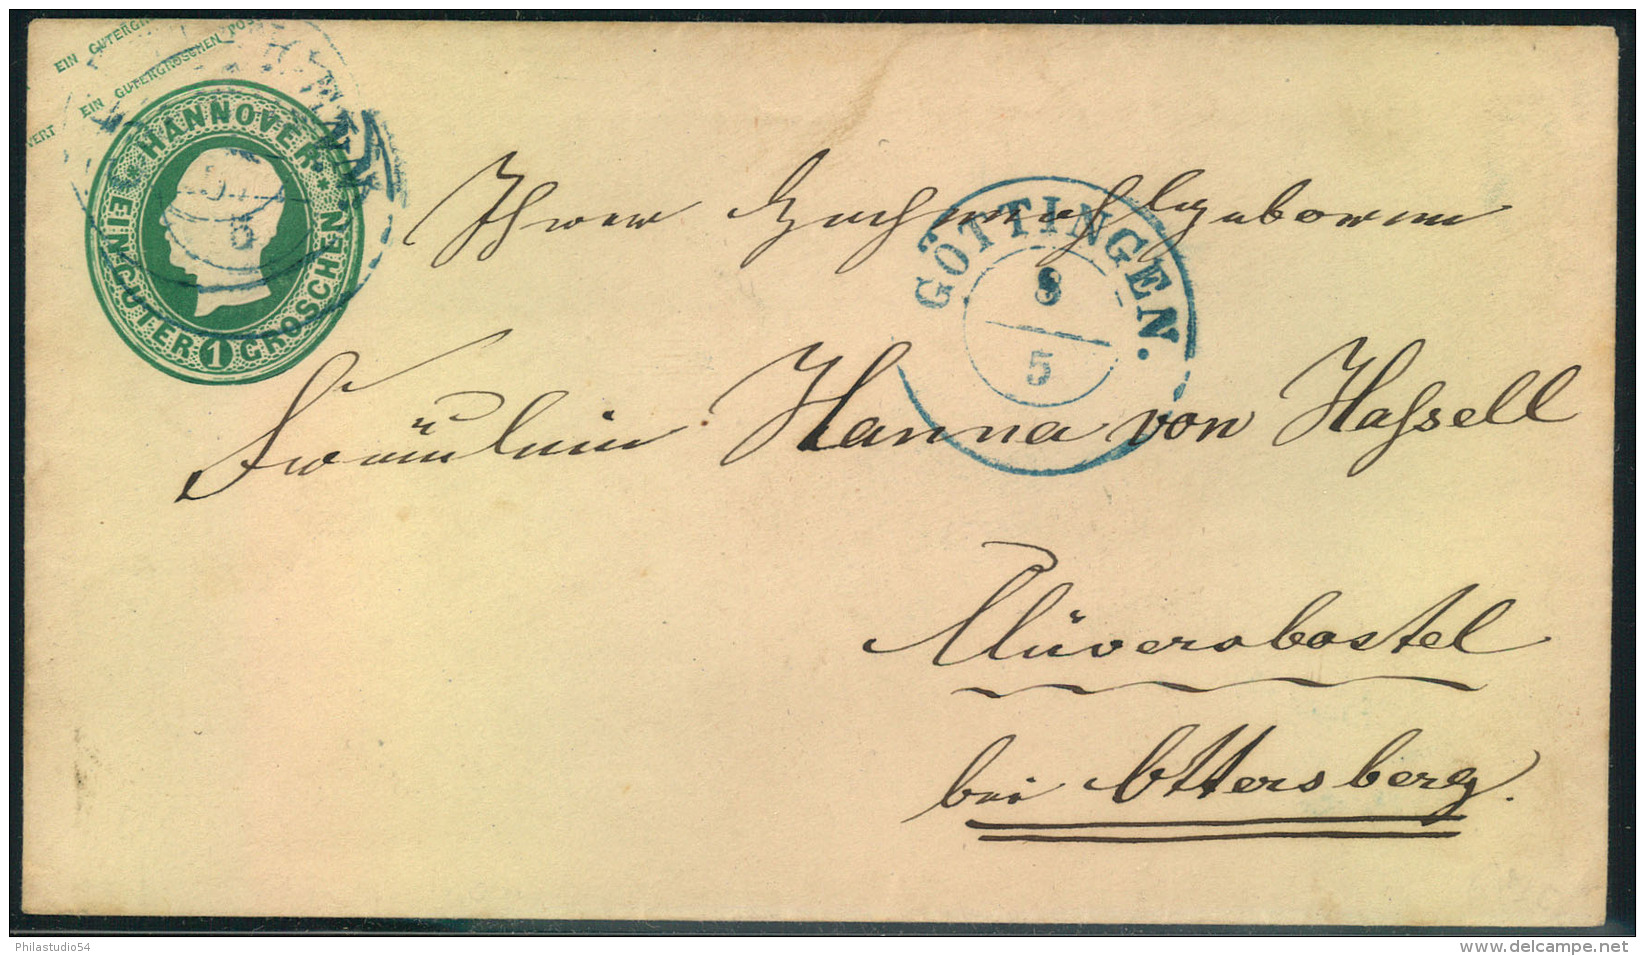 EIN GUTERGR
EIN GUTERGROSCHEN POS
VERT
HANNOVER
EIN GUTER 1 GROSCHEN
GÖTTINGEN.
8
5
Ihrer Hochwohlgeboren
Fräulein Hanna von Hassell
Clüversbostel
bei Ottersberg.
Philastudio54
delcampe.net